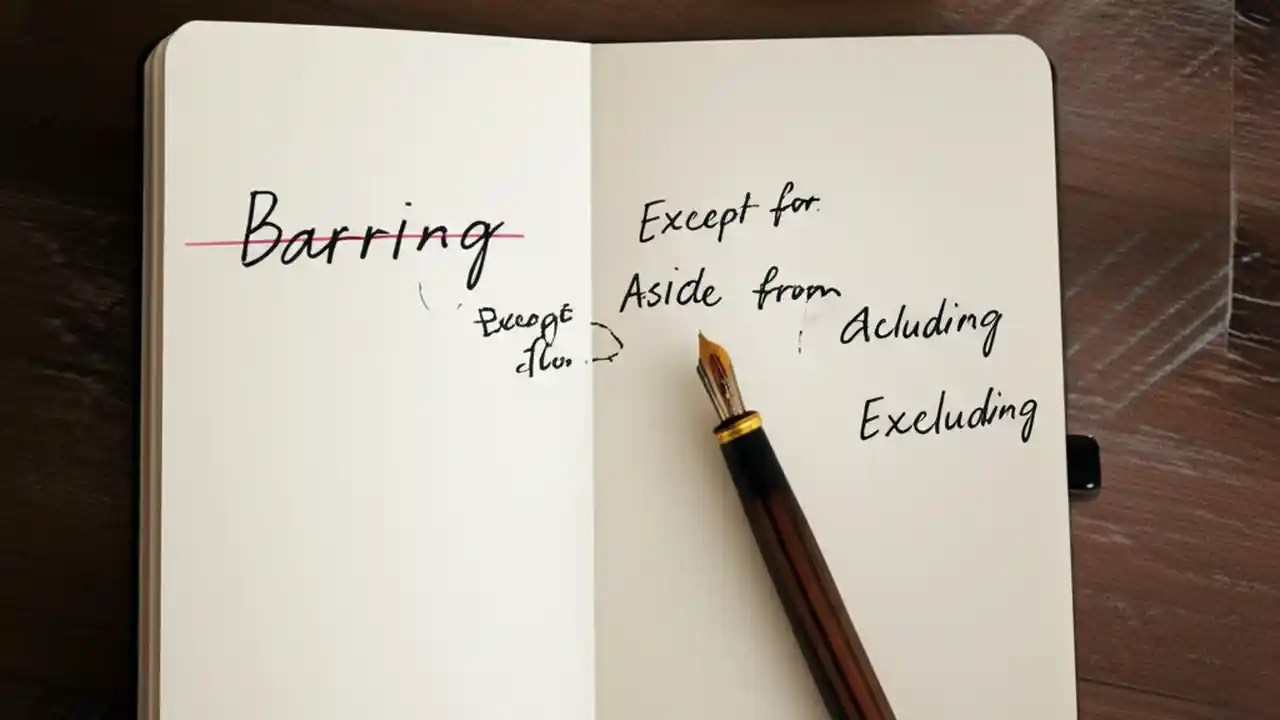 Barring
Except for.
Aside from
Acluding
Excluding